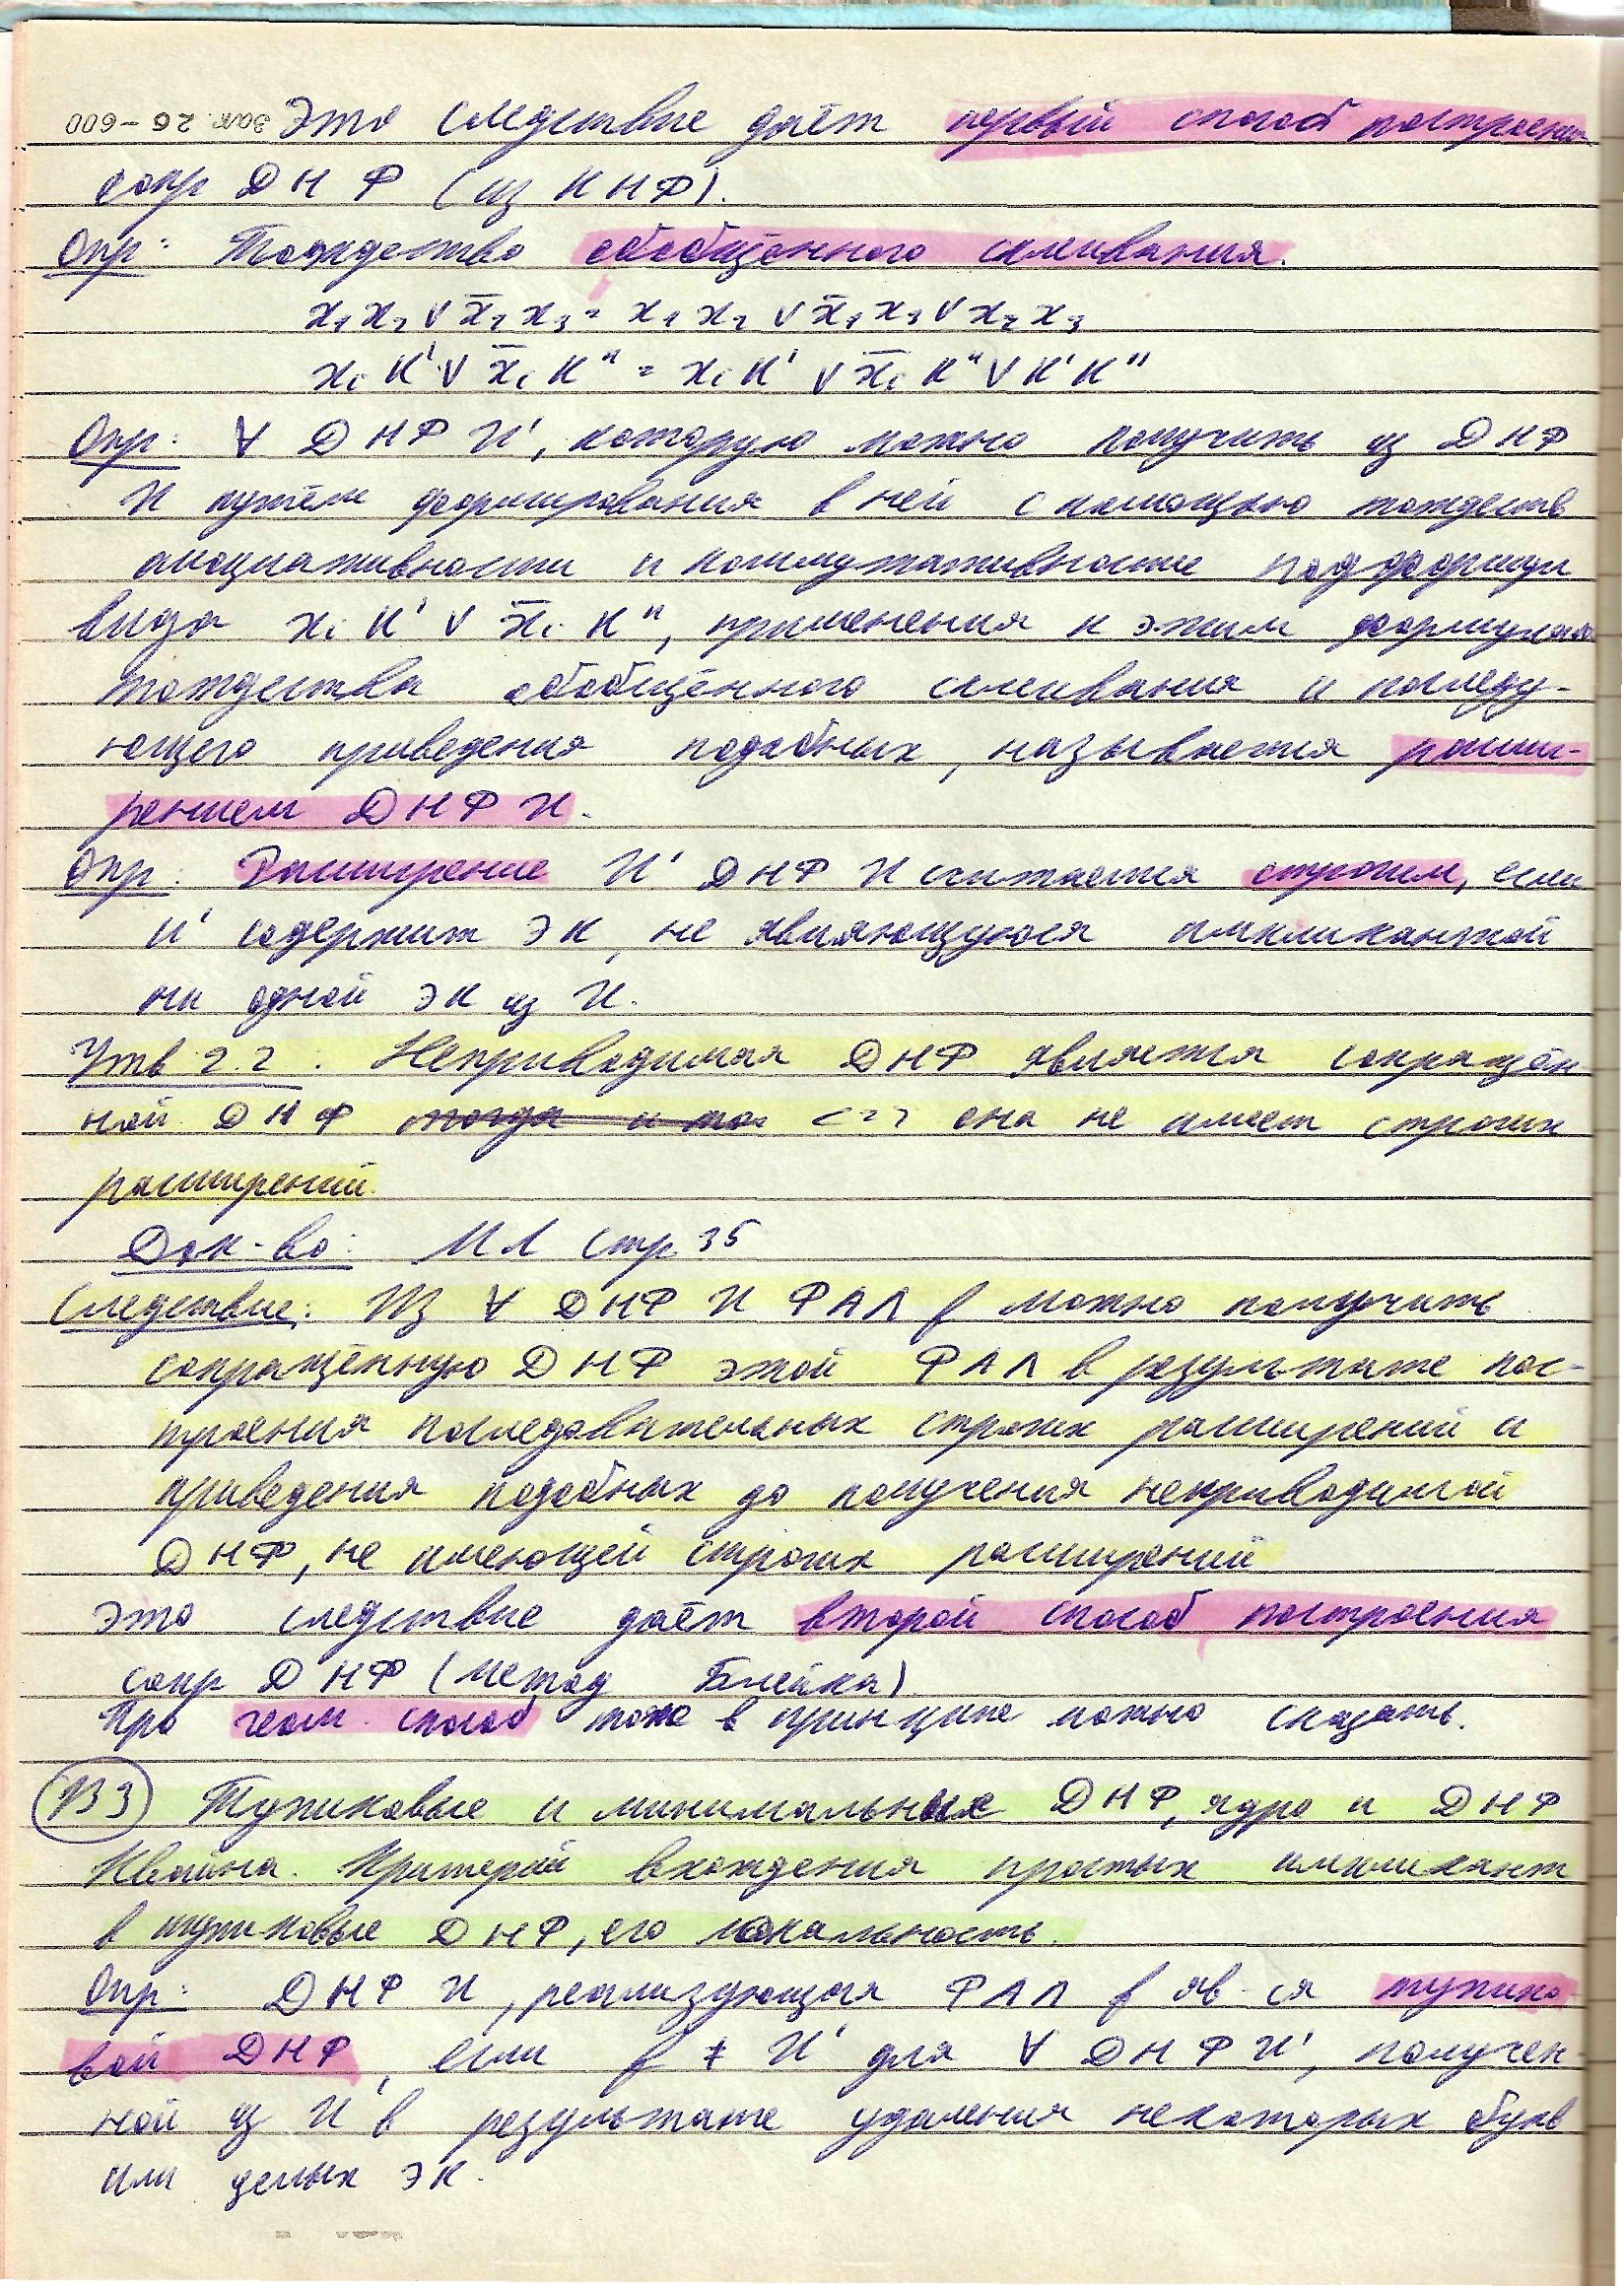 Зак. 26-600 Это следствие даёт первый способ построения
сокр ДНФ (из КНФ).
Опр: Тождество обобщённого склеивания.
x₁x₂ ∨ x̄₁x₃ = x₁x₂ ∨ x̄₁x₃ ∨ x₂x₃
xᵢK' ∨ x̄ᵢK'' = xᵢK' ∨ x̄ᵢK'' ∨ K'K''
Опр: ∀ ДНФ И', которую можно получить из ДНФ
И путём формирования в ней с помощью тождеств
ассоциативности и коммутативности подформул
вида xᵢK' ∨ x̄ᵢK'', применения к этим формулам
тождества обобщённого склеивания и последу-
ющего приведения подобных, называется расши-
рением ДНФ И.
Опр: Расширение И' ДНФ И считается строгим, если
И' содержит ЭК, не являющуюся импликантой
ни одной ЭК из И.
Утв 2.2. Неприводимая ДНФ является сокращён
ной ДНФ тогда и то <=> она не имеет строгих
расширений.
Док-во: МЛ стр 35
Следствие: Из ∀ ДНФ И ФАЛ f можно получить
сокращённую ДНФ этой ФАЛ в результате пос-
троения последовательных строгих расширений и
приведения подобных до получения неприводимой
ДНФ, не имеющей строгих расширений
Это следствие даёт второй способ построения
сокр ДНФ (метод Блейка)
Про геом. способ тоже в принципе можно сказать.
В3 Тупиковые и минимальные ДНФ, ядро и ДНФ
Квайна. Критерий вхождения простых импликант
в тупиковые ДНФ, его локальность.
Опр: ДНФ И, реализующая ФАЛ f яв-ся тупико
вой ДНФ, если f ≠ И' для ∀ ДНФ И', получен-
ной из И в результате удаления некоторых букв
или целых ЭК.